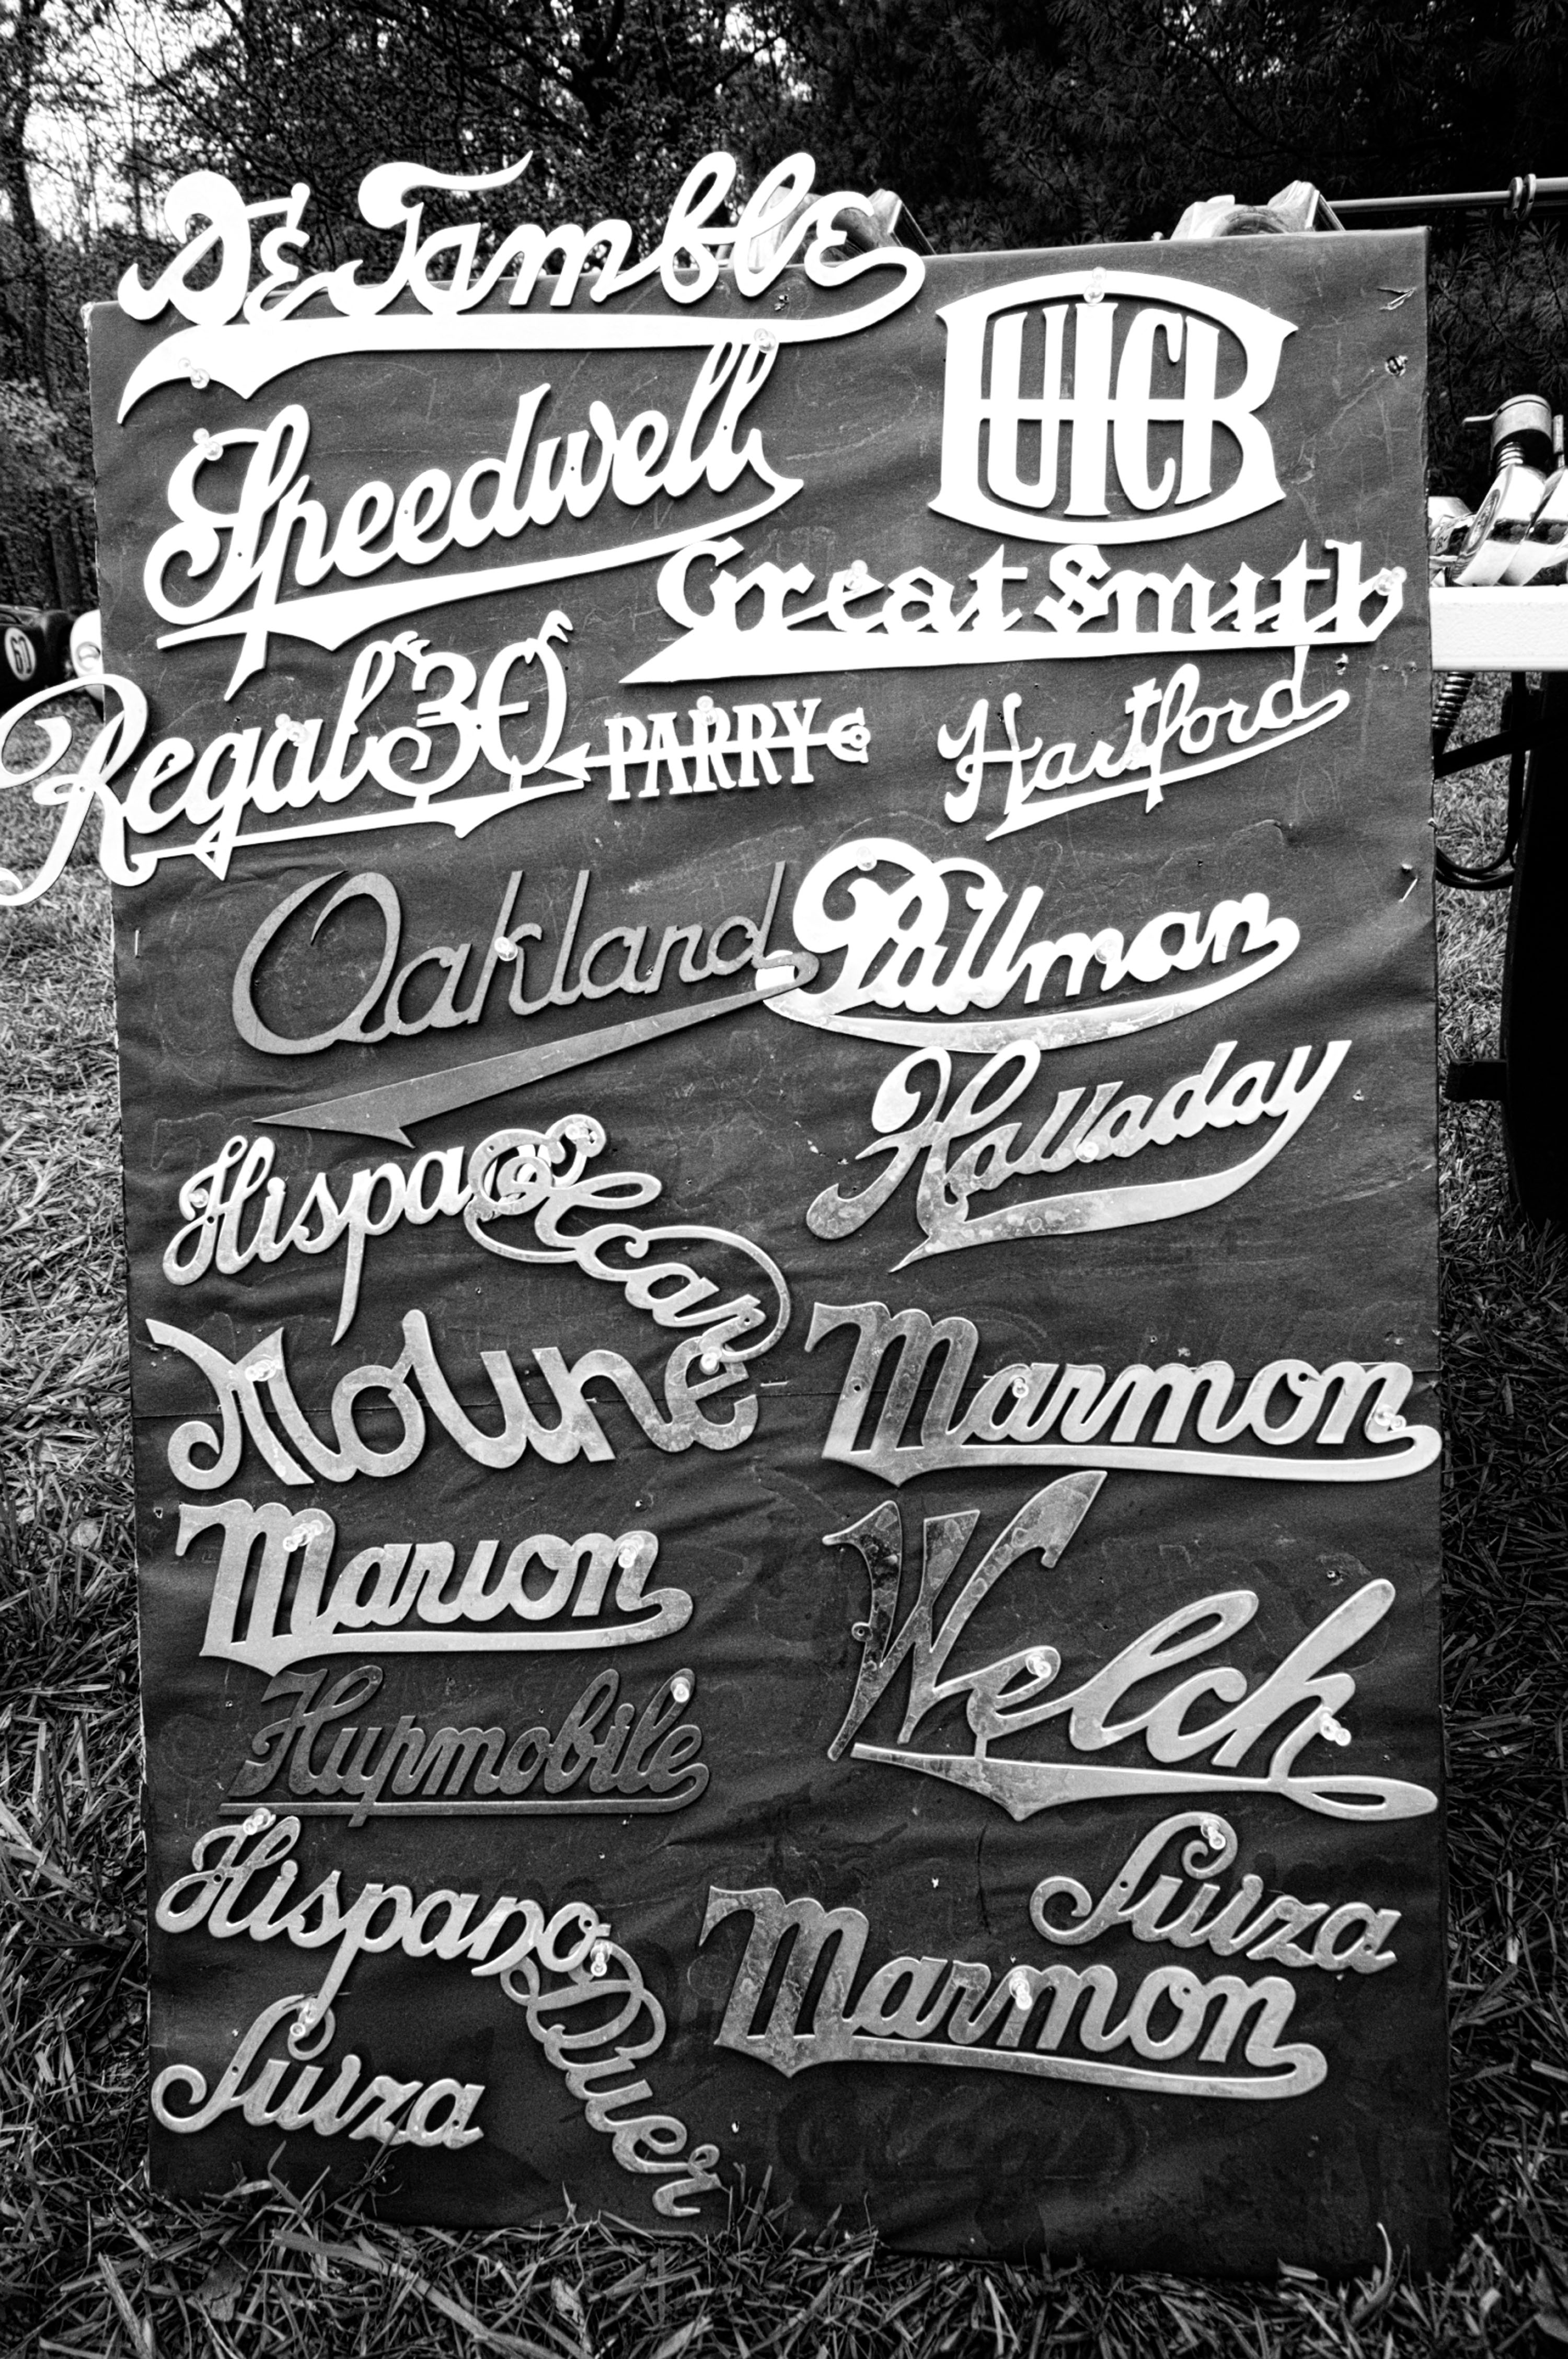 De Tamble
BUICK
Speedwell
Great Smith
Regal "30"
PARRY
Hartford
Oakland
Pullman
Halladay
Hispano
Moline
Marmon
Marion
Welch
Hupmobile
Hispano
Suiza
Marmon
Suiza
Duer
60